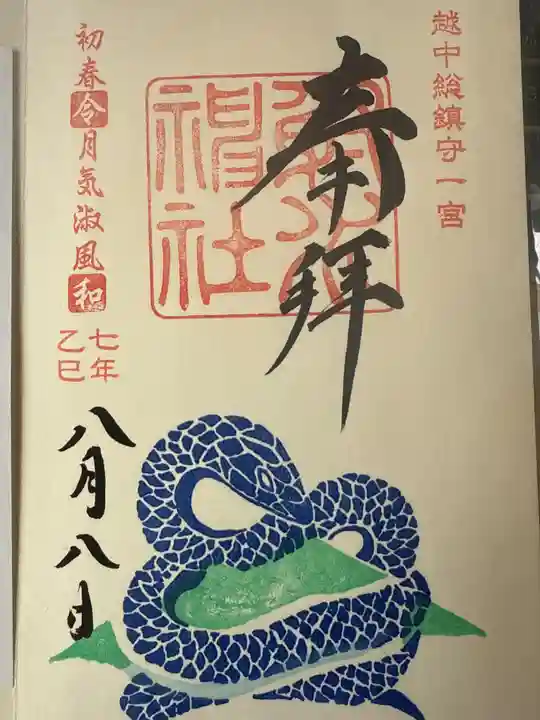 越中総鎮守一宮
奉拝
射水
神社
初春令月気淑風和
七年
乙巳
八月八日